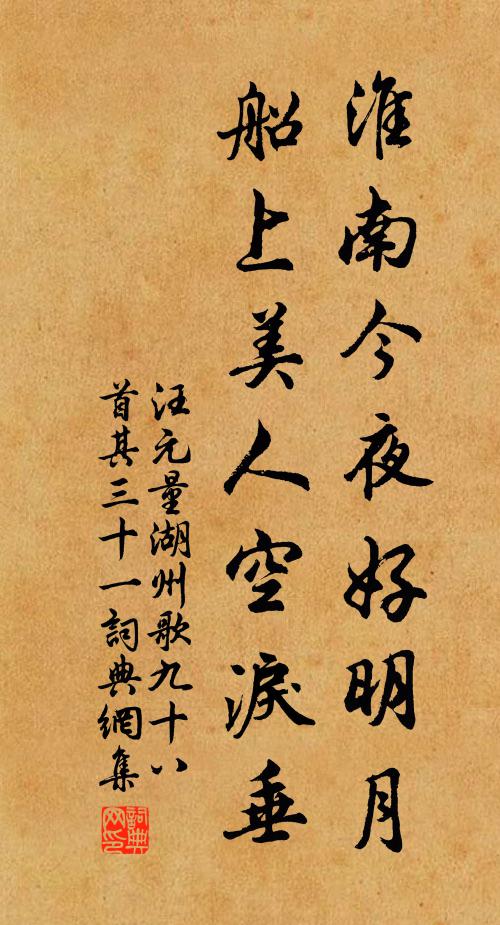 淮南今夜好明月
船上美人空淚垂
汪元量湖州歌九十八
首其三十一詞典網集
詞典
网印